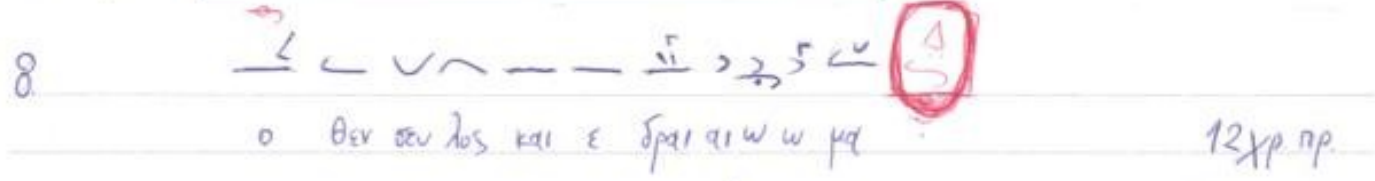 8
ο θεν σευ λος και ε δραι αι ω ω μα 12 χρ. πρ.